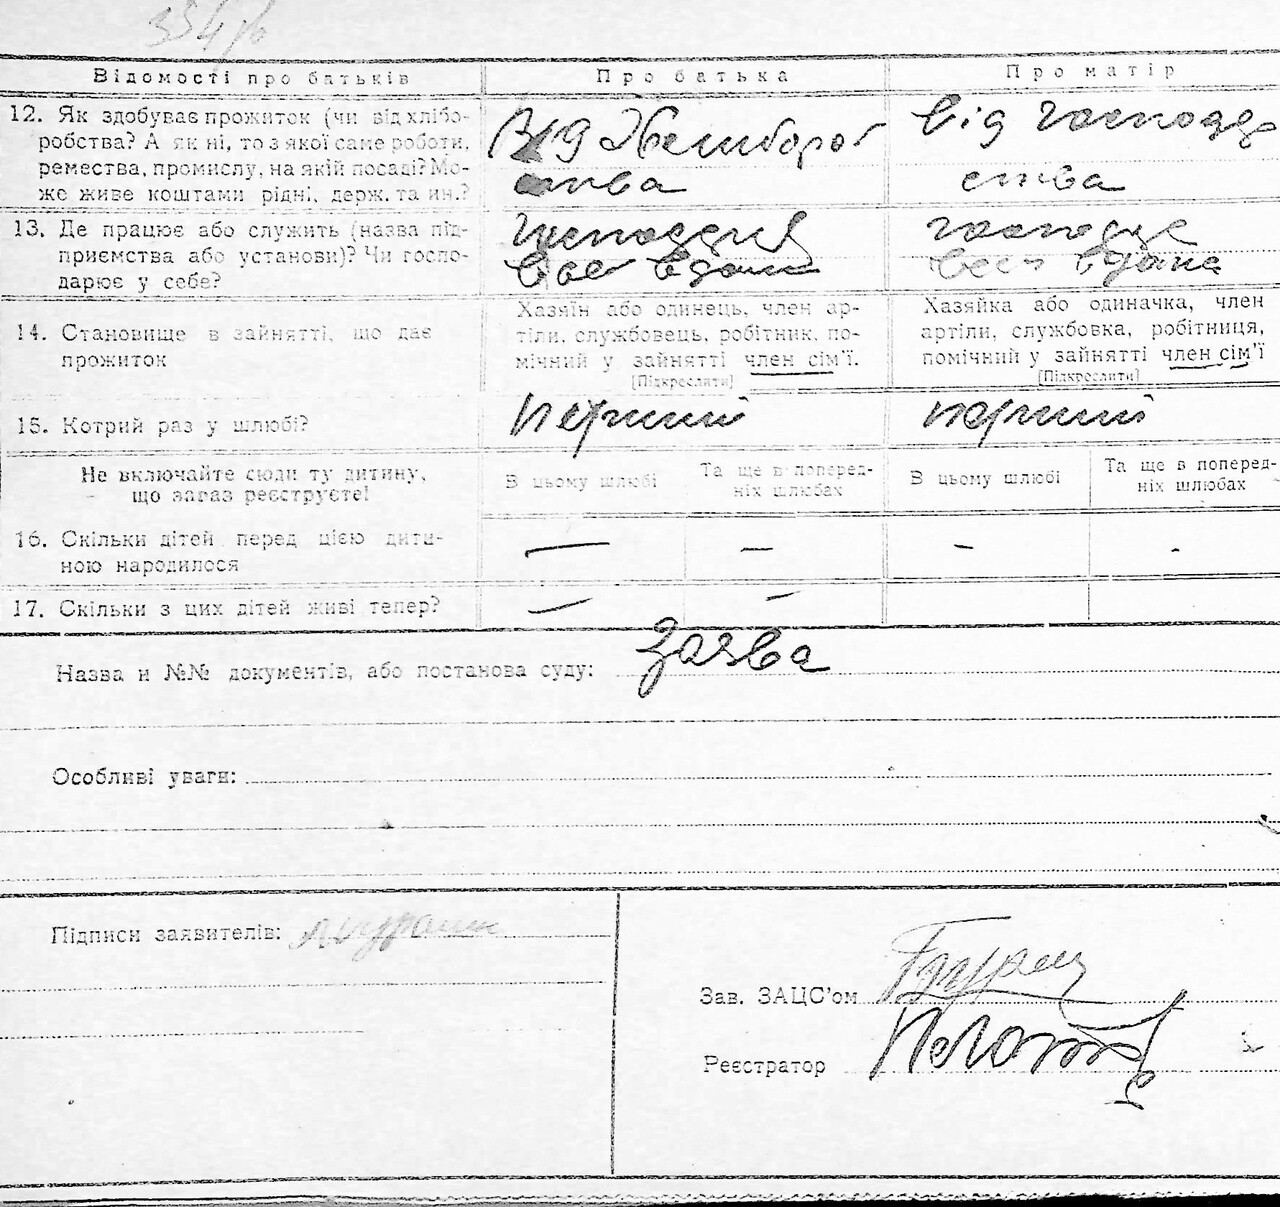 Відомості про батьків
Про батька
Про матір
12. Як здобуває прожиток (чи від хлібо-
робства? А як ні, то з якої саме роботи,
ремества, промислу, на якій посаді? Мо-
же живе коштами рідні, держ. та ин.?
від
ства
від господар
ства
13. Де працює або служить (назва під-
приємства або установи)? Чи госпо-
дарює у себе?
14. Становище в зайнятті, що дає
прожиток
Хазяїн або одинець, член ар-
тіли, службовець, робітник, по-
мічний у зайнятті член сім'ї.
(Підкреслити)
Хазяйка або одиначка, член
артіли, службовка, робітниця,
помічний у зайнятті член сім'ї
(Підкреслити)
15. Котрий раз у шлюбі?
перший
перший
Не включайте сюди ту дитину,
що зараз реєструєте!
В цьому шлюбі
Та ще в поперед-
ніх шлюбах
В цьому шлюбі
Та ще в поперед-
ніх шлюбах
16. Скільки дітей перед цією дити-
ною народилося
— — — -
17. Скільки з цих дітей живі тепер?
— —
Назва и №№ документів, або постанова суду: Заява
Особливі уваги:
Підписи заявителів:
Зав. ЗАЦС'ом
Реєстратор